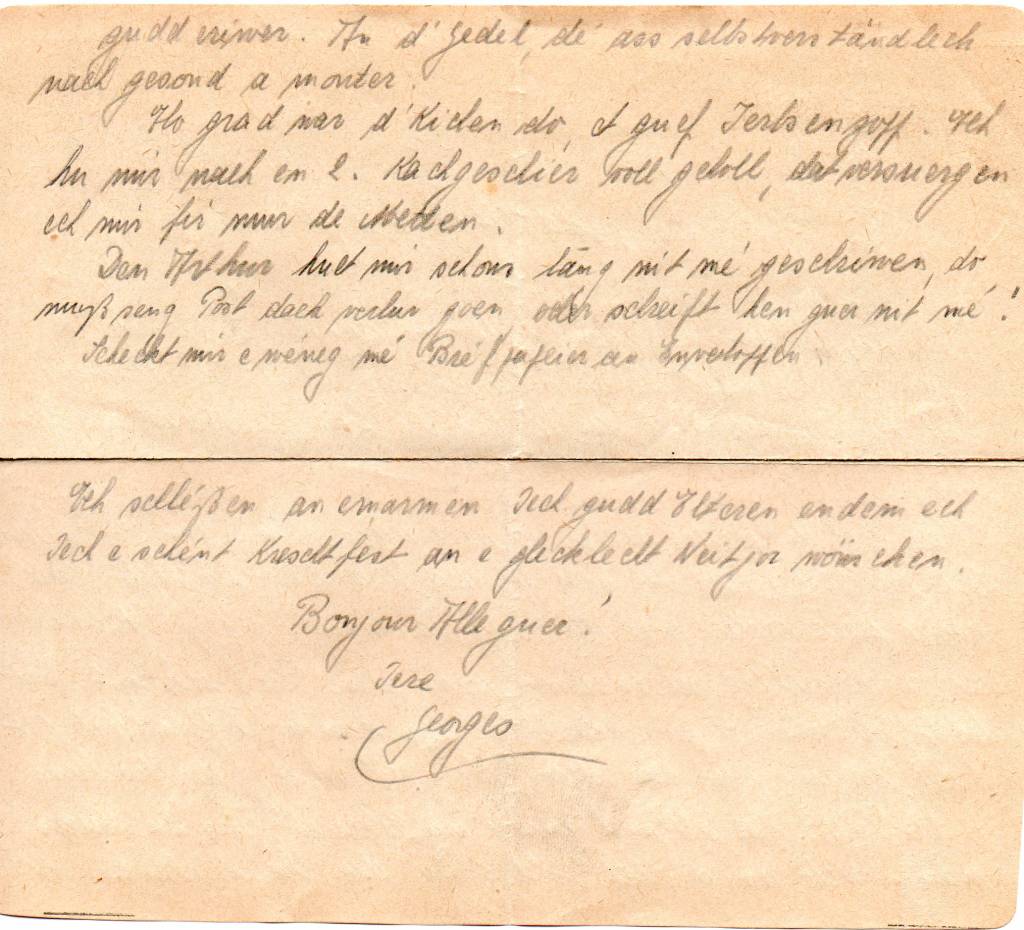 gudd eriwer. An d'Gedel, dé ass selbstverständlech
nach gesond a monter.
Ho grad war d'Kichen do, et guef Ierbsenzopp. Ech
hu mir nach en 2. Kachgeschier voll geholl, dat versuergen
ech mir fir muer de Meden.
Den Arthur huet mir schons läng nit mé geschriwen, do
muß seng Post dach verlur goen, oder schreift hen guer nit mé!
Scheckt mir e wéneg mé Bréfpapeier an Enveloppen.
Ech schléißen an emarmen Iech gudd Elteren endem ech
Iech e schént Kreschtfest an e glecklecht Neitjor wënschen.
Bonjour Alleguer!
Iere
Georges